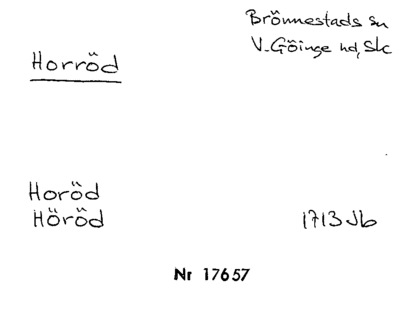 Brönnestads sn
V. Göinge hd, Sk
Horröd
Horöd
Höröd 1713 Jb
Nr 17657